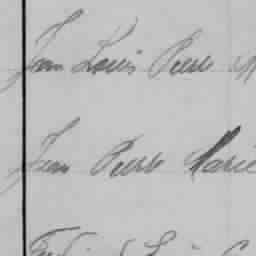 Jean Louis Pierre M
Jean Pierre Marie